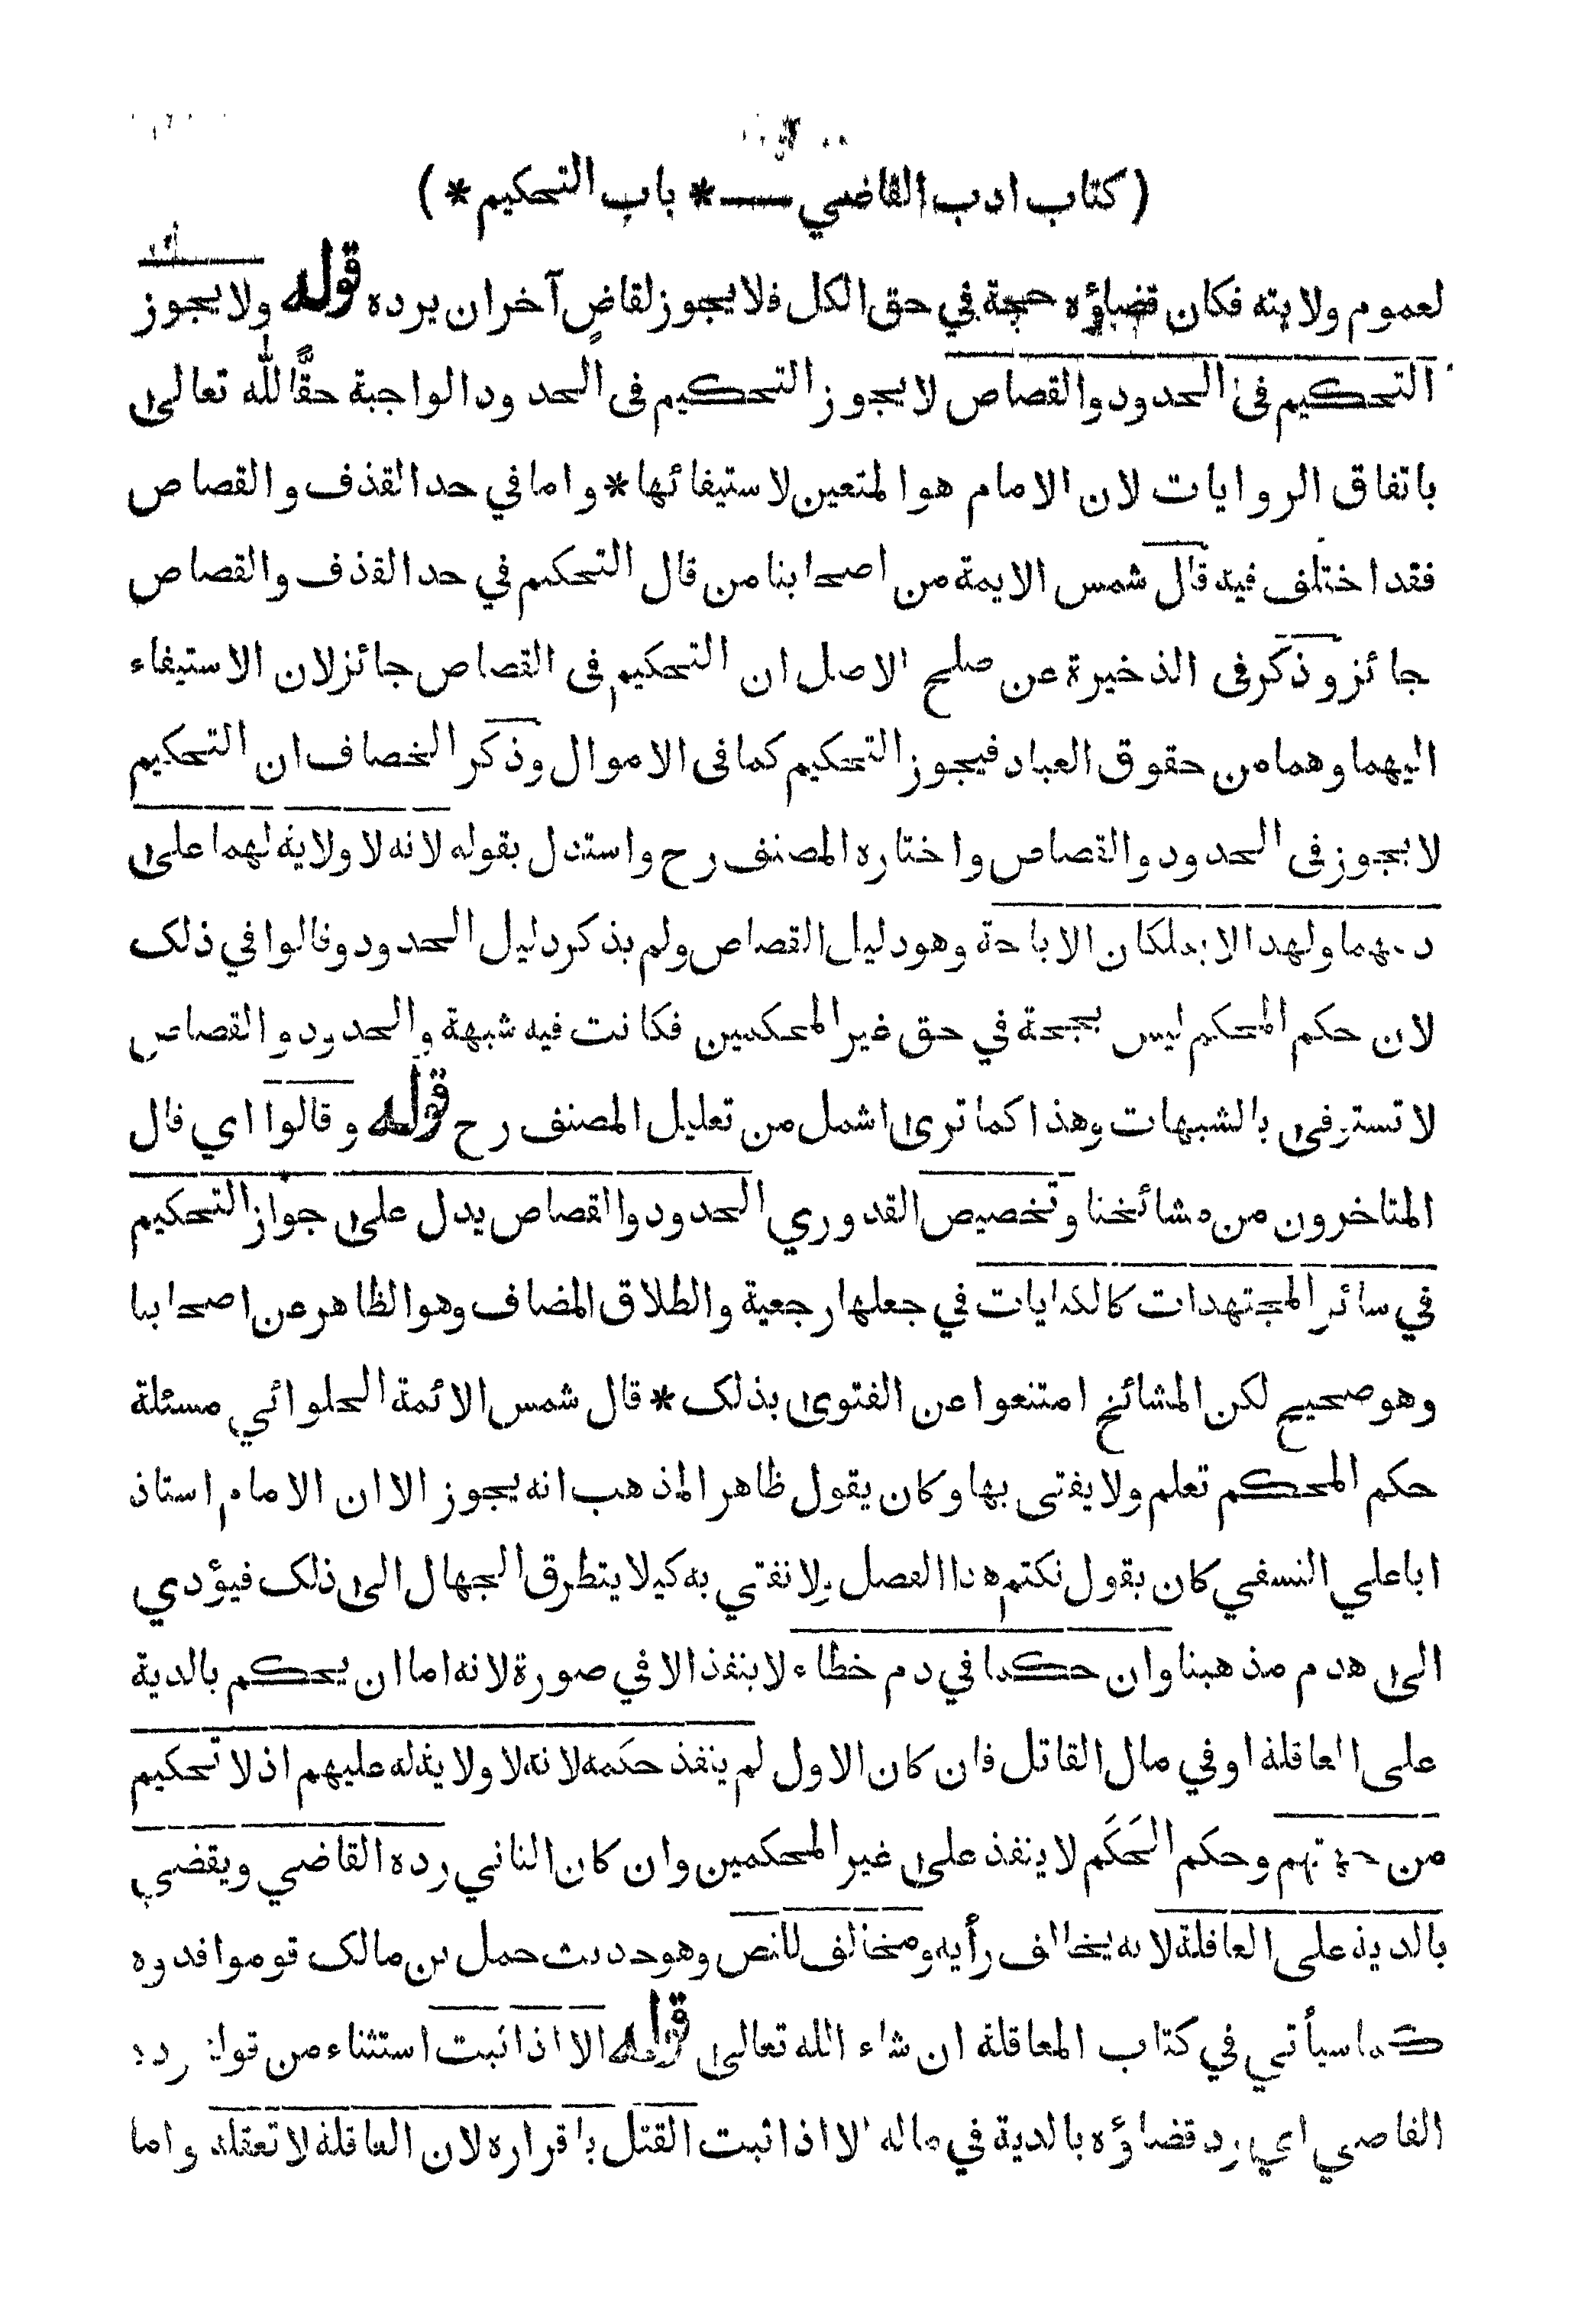 (كتاب ادب القاضي — * باب التحكيم *)
لعموم ولايته فكان قضاؤه حجة في حق الكل فلا يجوز لقاضٍ آخر ان يرده قوله ولا يجوز
التحكيم فى الحدود والقصاص لا يجوز التحكيم فى الحدود الواجبة حقًّا لله تعالى
باتفاق الروايات لان الامام هو المتعين لاستيفائها * واما في حد القذف والقصاص
فقد اختلف فيه قال شمس الايمة من اصحابنا من قال التحكيم في حد القذف والقصاص
جائز وذكر فى الذخيرة عن صلح الاصل ان التحكيم فى القصاص جائز لان الاستيفاء
اليهما وهما من حقوق العباد فيجوز التحكيم كما فى الاموال وذكر الخصاف ان التحكيم
لا يجوز فى الحدود والقصاص واختاره المصنف رح واستدل بقوله لانه لا ولاية لهما على
دمهما ولهذا لا يملكان الاباحة وهو دليل القصاص ولم يذكر دليل الحدود وقالوا في ذلک
لان حكم المحكم ليس بحجة في حق غير المحكمين فكانت فيه شبهة والحدود والقصاص
لا تستوفى بالشبهات وهذا كما ترى اشمل من تعليل المصنف رح قوله وقالوا اي قال
المتاخرون من مشائخنا وتخصيص القدوري الحدود والقصاص يدل على جواز التحكيم
في سائر المجتهدات كالكنايات في جعلها رجعية والطلاق المضاف وهو الظاهر عن اصحابنا
وهو صحيح لكن المشائخ امتنعوا عن الفتوى بذلک * قال شمس الائمة الحلوائي مسئلة
حكم المحكم تعلم ولا يفتى بها وكان يقول ظاهر المذهب انه يجوز الا ان الامام استاذ
ابا علي النسفي كان يقول نكتم هذا الفصل ولا نفتي به كيلا يتطرق الجهال الى ذلک فيؤدي
الى هدم مذهبنا وان حكما في دم خطاء لا ينفذ الا في صورة لانه اما ان يحكم بالدية
على العاقلة او في مال القاتل فان كان الاول لم ينفذ حكمه لانه لا ولاية له عليهم اذ لا تحكيم
من جهتهم وحكم الحَكَم لا ينفذ على غير المحكمين وان كان الثاني رده القاضي ويقضي
بالدية على العاقلة لانه يخالف رأيه ومخالف للنص وهو حديث حمل بن مالک قوموا فدوه
كما سيأتي في كتاب المعاقلة ان شاء الله تعالى قوله الا اذا ثبت استثناء من قوله رده
القاضي اي يرد قضاؤه بالدية في ماله الا اذا ثبت القتل باقراره لان العاقلة لا تعقله واما